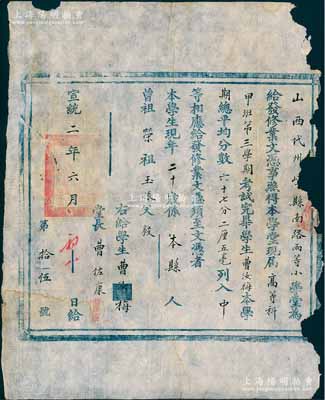 上海陽明拍賣
山西代州縣南路兩等小學堂為
給發修業文憑事照得本學堂現届高等科
甲班第三學期考試完畢學生曹汝梅本學
期總平均分數六十七分二厘五毫列入中
等相應給發修業文憑須至文憑者
本學生現年二十歲係本縣人
曾祖榮祖玉父
右給學生曹梅
堂長曹佐康
宣統二年六月日給
第拾伍號
上海陽明拍賣